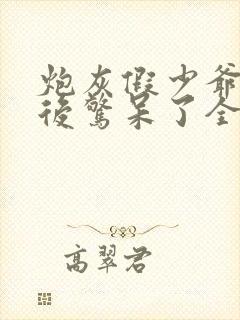 炮灰假少爷
後驚呆了全
高翠君